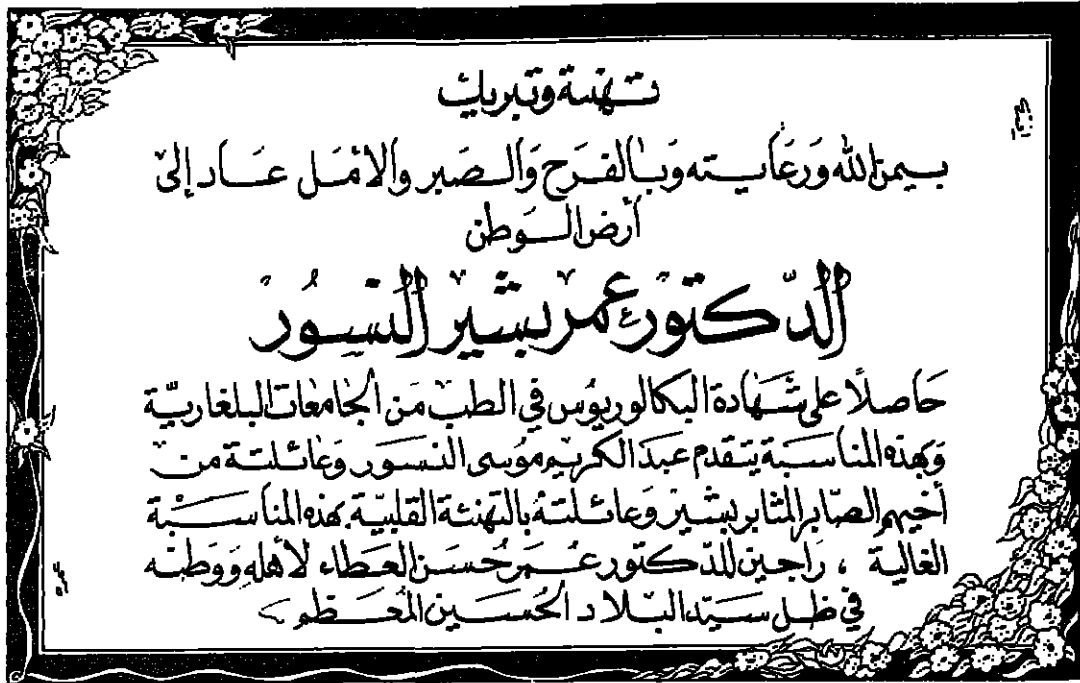 تهنئة وتبريك
بيمن الله ورعايته وبالفرح والصبر والأمل عاد إلى
أرض الوطن
الدكتور عمر بشير النسور
حاصلاً على شهادة البكالوريوس في الطب من الجامعات البلغارية
وبهذه المناسبة يتقدم عبد الكريم موسى النسور وعائلته من
أخيهم الصابر المثابر بشير وعائلته بالتهنئة القلبية بهذه المناسبة
الغالية ، راجين للدكتور عمر حسن العطاء لأهله ووطنه
في ظل سيد البلاد الحسين المعظم